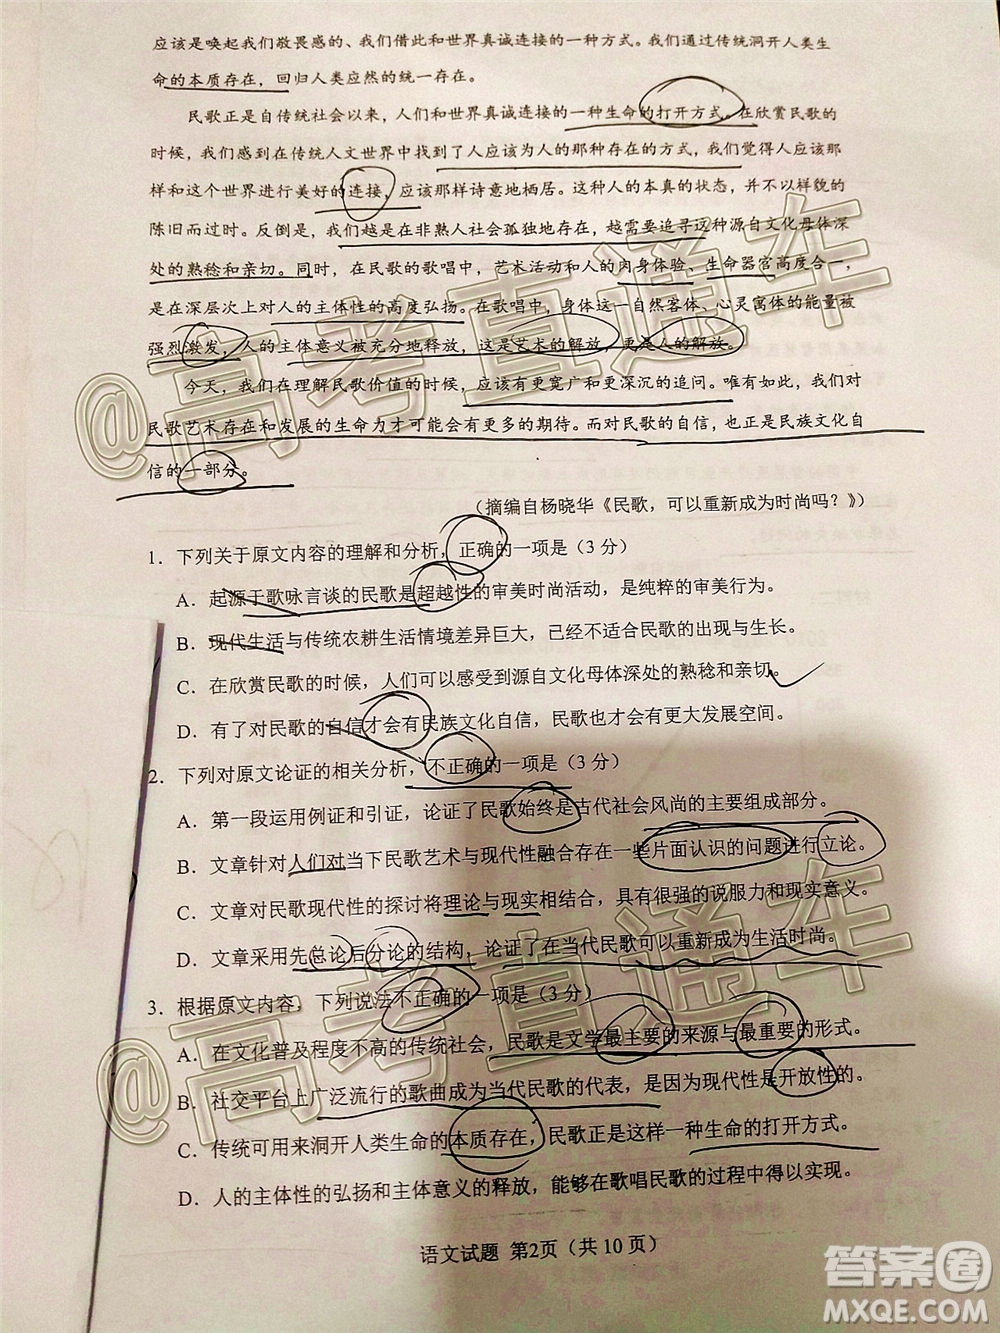 应该是唤起我们敬畏感的、我们借此和世界真诚连接的一种方式。我们通过传统洞开人类生
命的本质存在，回归人类应然的统一存在。
民歌正是自传统社会以来，人们和世界真诚连接的一种生命的打开方式。在欣赏民歌的
时候，我们感到在传统人文世界中找到了人应该为人的那种存在的方式，我们觉得人应该那
样和这个世界进行美好的连接，应该那样诗意地栖居。这种人的本真的状态，并不以样貌的
陈旧而过时。反倒是，我们越是在非熟人社会孤独地存在，越需要追寻这种源自文化母体深
处的熟稔和亲切。同时，在民歌的歌唱中，艺术活动和人的肉身体验、生命器官高度合一，
是在深层次上对人的主体性的高度弘扬。在歌唱中，身体这一自然客体、心灵寓体的能量被
强烈激发，人的主体意义被充分地释放，这是艺术的解放，更是人的解放。
今天，我们在理解民歌价值的时候，应该有更宽广和更深沉的追问。唯有如此，我们对
民歌艺术存在和发展的生命力才可能会有更多的期待。而对民歌的自信，也正是民族文化自
信的一部分。
（摘编自杨晓华《民歌，可以重新成为时尚吗？》）
1．下列关于原文内容的理解和分析，正确的一项是（3 分）
A．起源于歌咏言谈的民歌是超越性的审美时尚活动，是纯粹的审美行为。
B．现代生活与传统农耕生活情境差异巨大，已经不适合民歌的出现与生长。
C．在欣赏民歌的时候，人们可以感受到源自文化母体深处的熟稔和亲切。
D．有了对民歌的自信才会有民族文化自信，民歌也才会有更大发展空间。
2．下列对原文论证的相关分析，不正确的一项是（3 分）
A．第一段运用例证和引证，论证了民歌始终是古代社会风尚的主要组成部分。
B．文章针对人们对当下民歌艺术与现代性融合存在一些片面认识的问题进行立论。
C．文章对民歌现代性的探讨将理论与现实相结合，具有很强的说服力和现实意义。
D．文章采用先总论后分论的结构，论证了在当代民歌可以重新成为生活时尚。
3．根据原文内容，下列说法不正确的一项是（3 分）
A．在文化普及程度不高的传统社会，民歌是文学最主要的来源与最重要的形式。
B．社交平台上广泛流行的歌曲成为当代民歌的代表，是因为现代性是开放性的。
C．传统可用来洞开人类生命的本质存在，民歌正是这样一种生命的打开方式。
D．人的主体性的弘扬和主体意义的释放，能够在歌唱民歌的过程中得以实现。
语文试题 第2页（共 10 页）
@高考直通车
@高考直通车
@高考直通车
答案圈
MXQE.COM